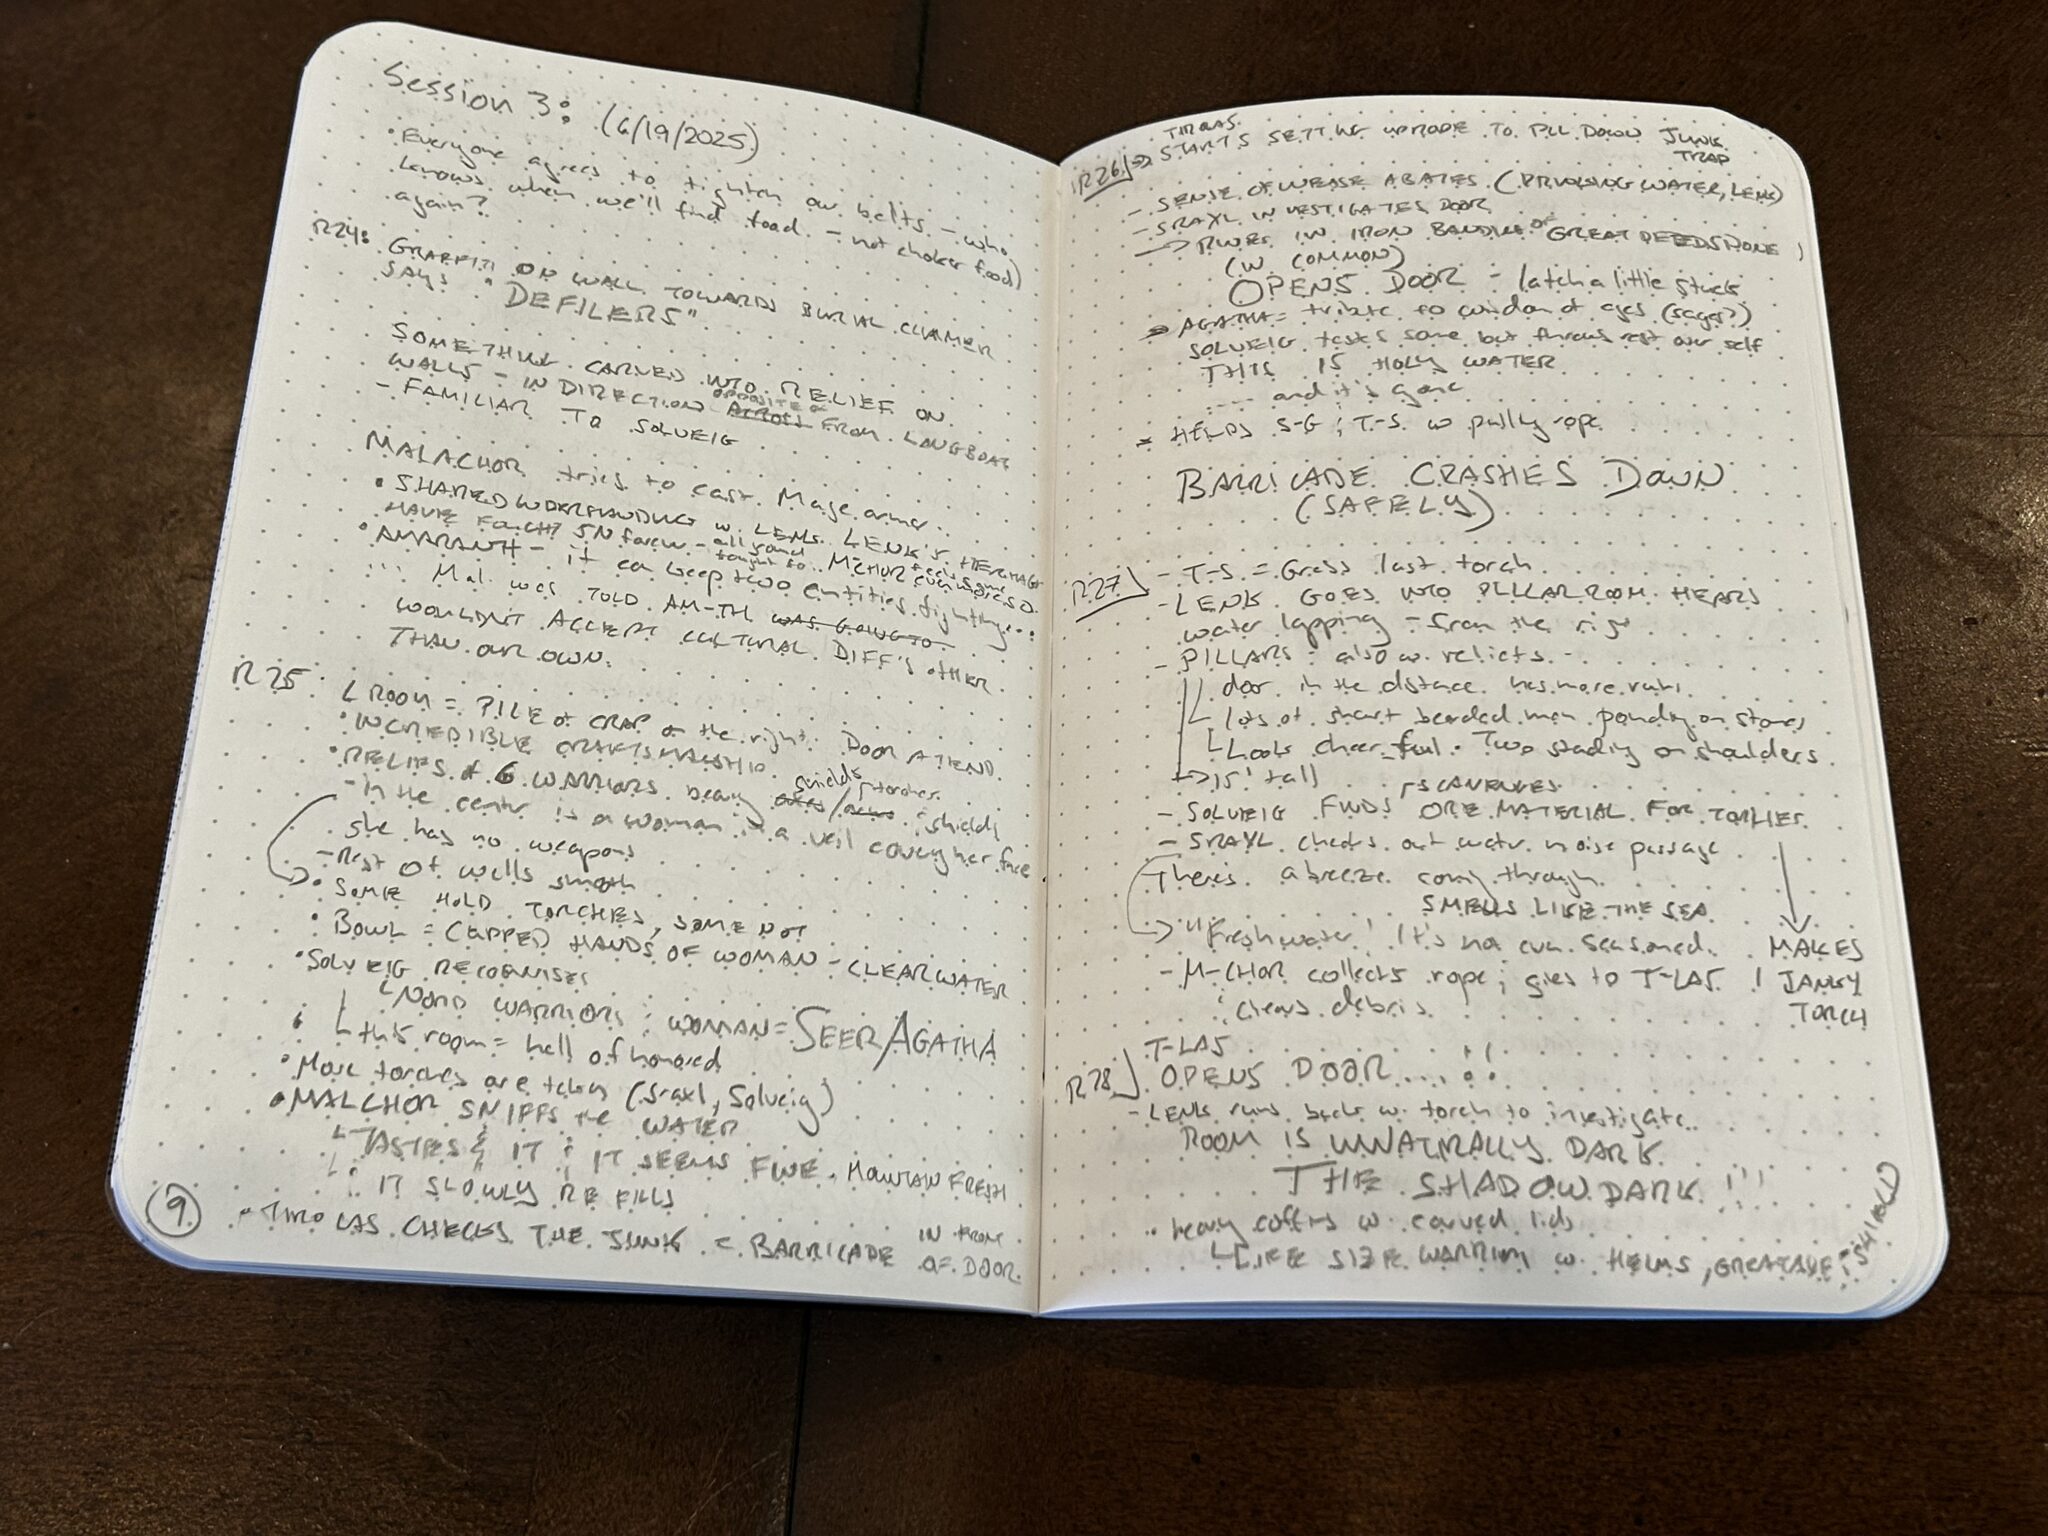 Session 3: (6/19/2025)
• Everyone agrees to tighten our belts – who
knows when we'll find food – not choker food)
again?
R24: GRAFFITI ON WALL TOWARDS BURIAL CHAMBER
SAYS "DEFILERS"
SOMETHING CARVED INTO RELIEF ON
WALLS – IN DIRECTION OPPOSITE OF FROM LONGBOAT
– FAMILIAR TO SOLVEIG
MALACHOR tries to cast Mage armor.
• SHARED UNDERSTANDING w. LENK. LENK'S HERITAGE
HAVE FOUGHT
• AMARANTH – it can keep two entities fighting...
Mal. was TOLD AM-TH WAS GOING TO
WOULDN'T ACCEPT CULTURAL DIFF'S OTHER
THAN OUR OWN.
R25: L ROOM = PILE of CRAP on the right. DOOR AT END.
• INCREDIBLE CRAFTSMANSHIP
• RELIEFS of 6 WARRIORS bearing axes / shields
– in the center is a woman in a veil covering her face
she has no weapons
– Rest of walls smooth
• SOME HOLD TORCHES, SOME NOT
• BOWL = CUPPED HANDS OF WOMAN – CLEAR WATER
• SOLVEIG RECOGNISES
NORD WARRIORS; WOMAN = SEER AGATHA
this room = hall of honored
• More torches are taken (Sraxl, Solveig)
• MALCHOR SNIFFS the WATER
TASTES IT & IT SEEMS FINE. MOUNTAIN FRESH
IT SLOWLY REFILLS
• TIMOLAS CHECKS THE JUNK = BARRICADE IN FRONT
OF DOOR.
9
R26 STARTS SETTING UP ROPE TO PULL DOWN JUNK
TRAP
– SENSE OF UNEASE ABATES (DRINKING WATER, LENK)
– SRAXL INVESTIGATES DOOR
→ RUNES IN IRON BANDING OF GREAT DEEDS DONE
(IN COMMON)
OPENS DOOR – latch a little stuck
AGATHA = tribute to wisdom of ages (sages?)
SOLVEIG tastes some but throws rest over self
THIS IS HOLY WATER
.... and it's gone
– HELPS S-G; T-S. w pulling rope
BARRICADE CRASHES DOWN
(SAFELY)
R27 – T-S. = Grabs last torch
– LENK GOES INTO PILLAR ROOM. HEARS
water lapping – from the right
– PILLARS: also w. reliefs –
door in the distance has more runes.
lots of short bearded men pounding on stones
Looks cheerful. Two standing on shoulders.
→ 15' tall
SCAVENGES
– SOLVEIG FINDS MORE MATERIAL FOR TORCHES
– SRAXL checks out water noise passage
There's a breeze coming through.
SMELLS LIKE THE SEA.
→ "Freshwater! It's not even seasoned. MAKES
– M-CHOR collects rope; gives to T-LAS JANKY
; clears debris. TORCH
T-LAS
R28 OPENS DOOR....!!
– LENK runs back w. torch to investigate.
ROOM IS UNNATURALLY DARK
THE SHADOWDARK!!!
• heavy coffins w. carved lids
LIFE SIZE WARRIORS w. HELMS, GREATAXE; SHIELD